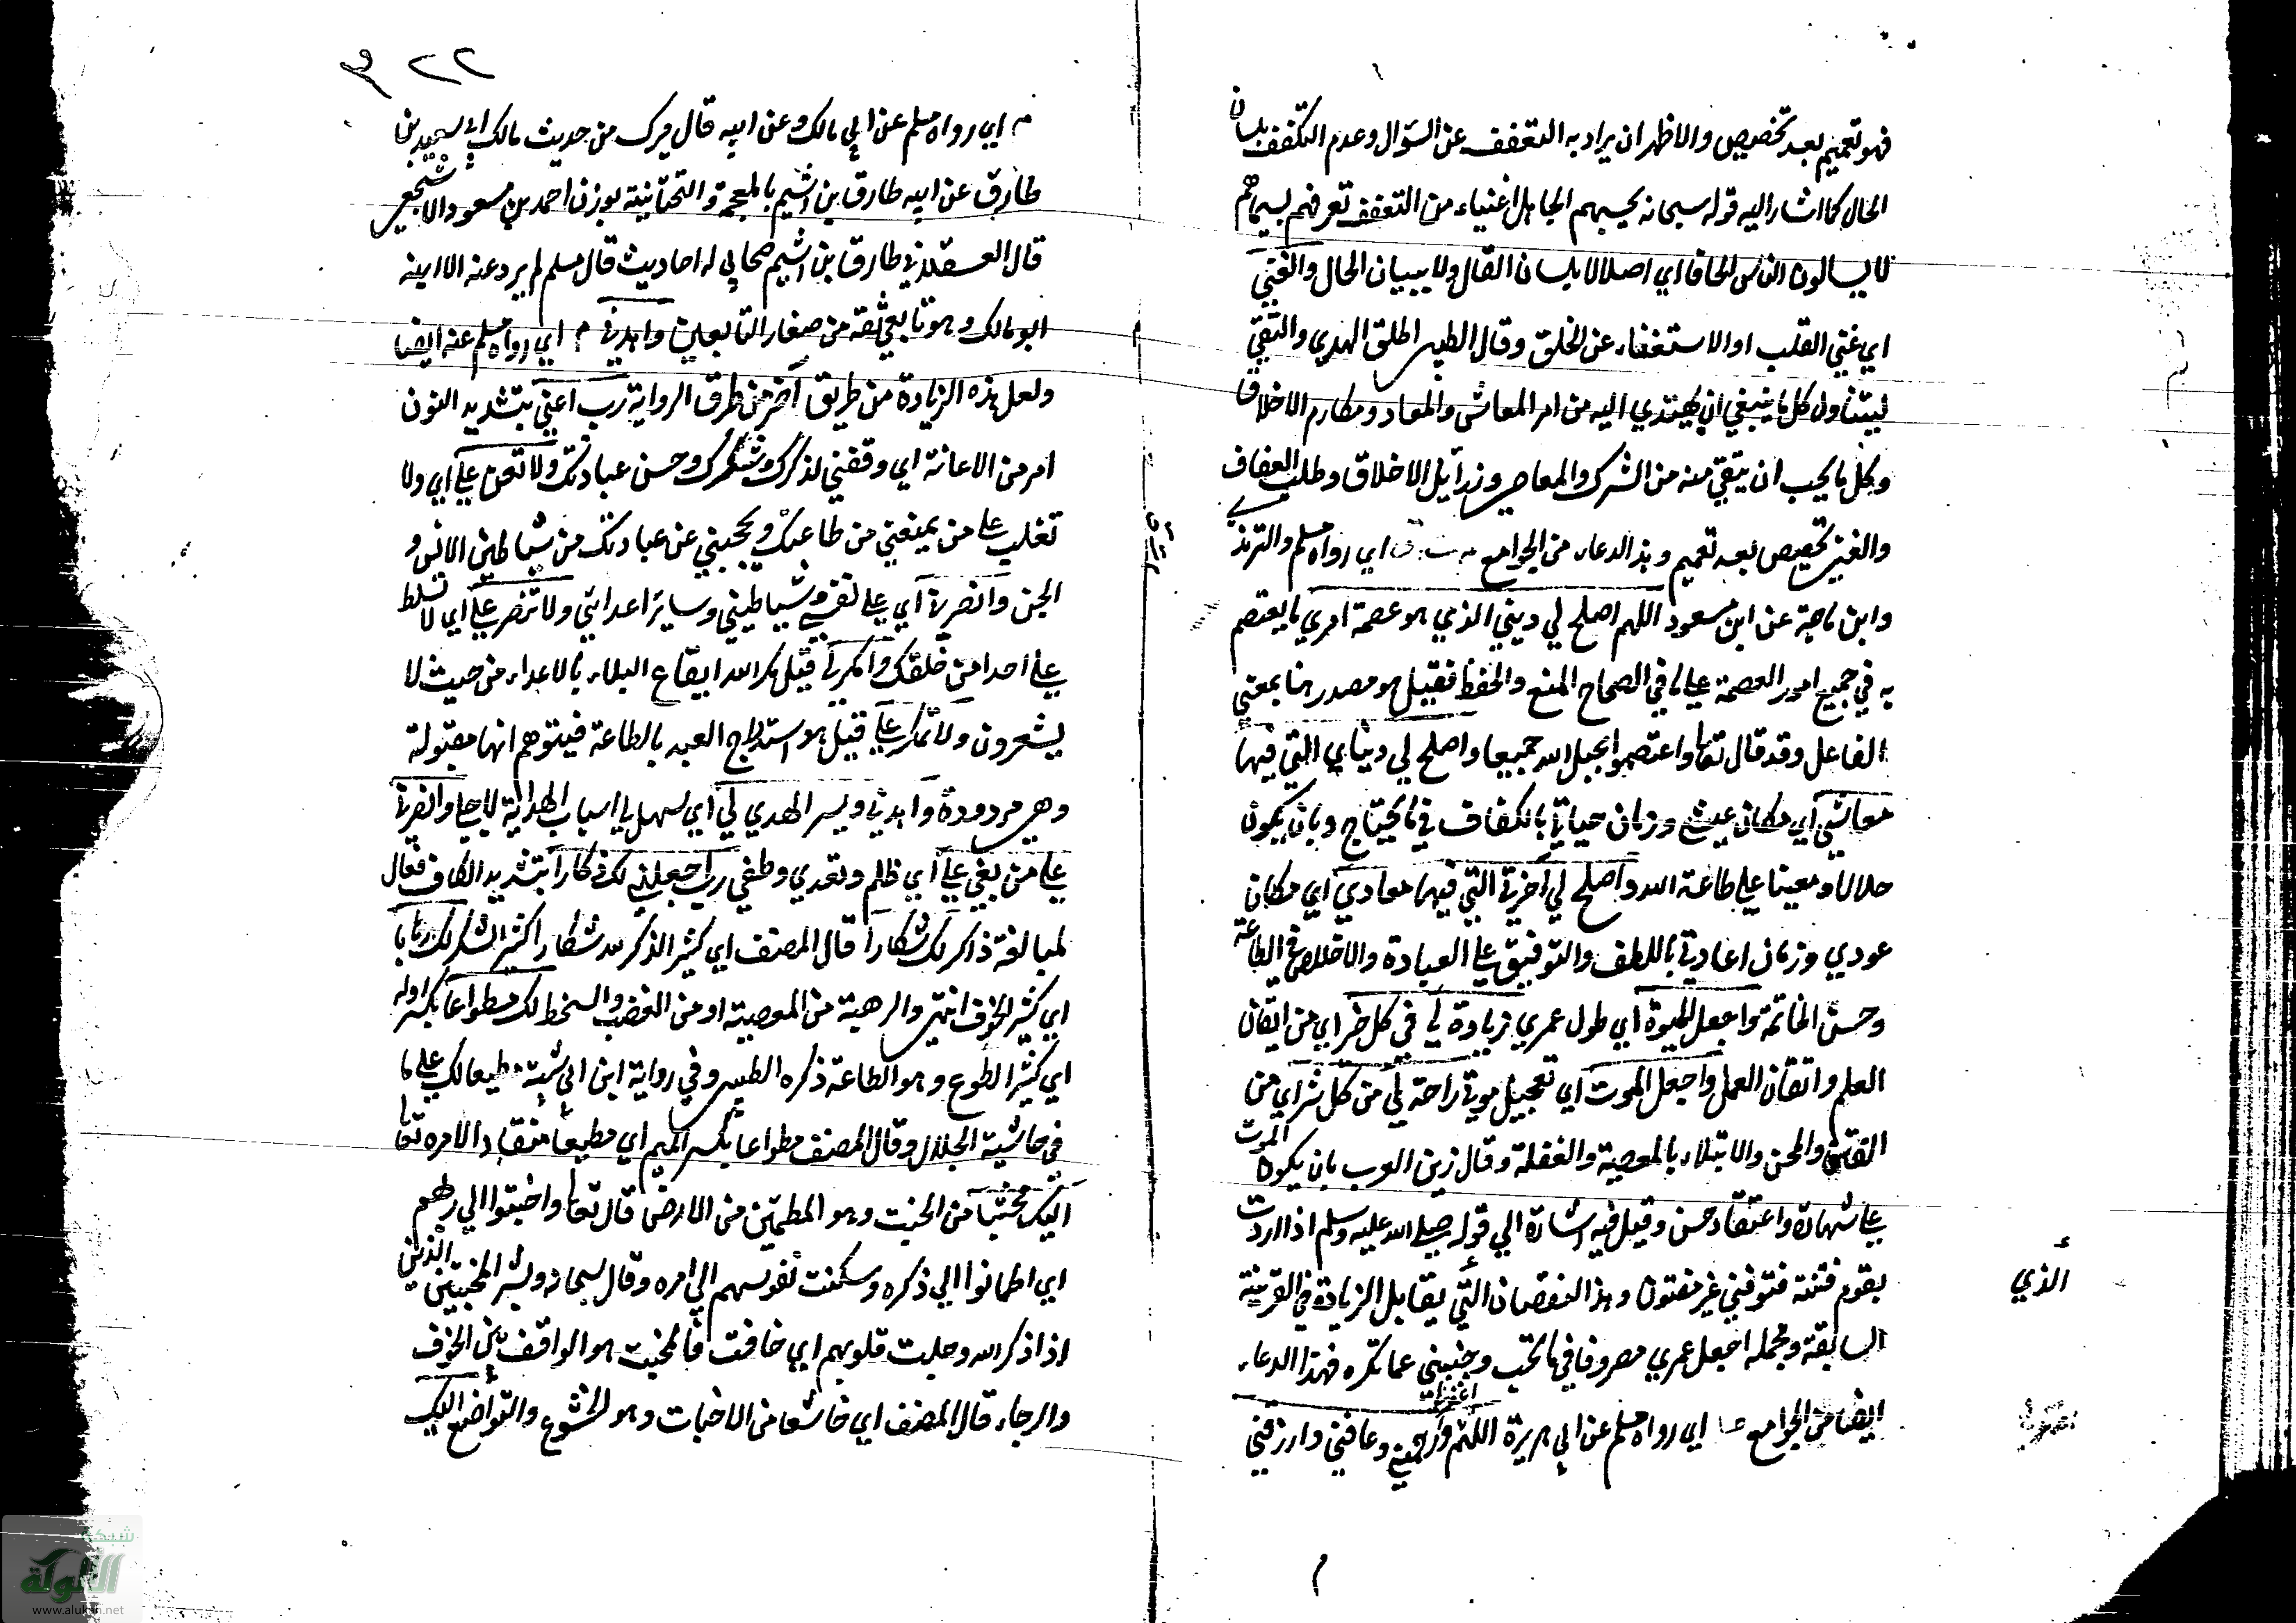 فهو تعميم بعد تخصيص والاظهر ان يراد به التعفف عن السؤال وعدم التكفف بلسان
الحال كما اشار اليه قوله سبحانه يحسبهم الجاهل اغنياء من التعفف تعرفهم بسيماهم
لا يسالون الناس الحافا اي اصلا لا بلسان القال ولا ببيان الحال والغني
اي غني القلب او الاستغناء عن الخلق وقال الطيبي اطلق الهدي والتقي
ليتناول كل ما ينبغي ان يهتدي اليه من امر المعاش والمعاد ومكارم الاخلاق
وكل ما يجب ان يتقي منه من الشرك والمعاصي ورذايل الاخلاق وطلب العفاف
والغني تخصيص بعد تعميم وهذا الدعاء من الجوامع م ت ق اي رواه مسلم والترمذي
وابن ماجة عن ابن مسعود اللهم اصلح لي ديني الذي هو عصمة امري ما يعتصم
به في جميع امور العصمة علي ما في الصحاح المنع والحفظ فقيل هو مصدر هنا بمعني
الفاعل وقد قال تعا واعتصموا بحبل الله جميعا واصلح لي دنياي التي فيها
معاشي اي مكان عيشي وزمان حياتي بالكفاف في ما يحتاج وبان يكون
حلالا ومعينا علي طاعة الله واصلح لي آخرتي التي فيها معادي اي مكان
عودي وزمان اعادتي باللطف والتوفيق علي العبادة والاخلاص في الطاعة
وحسن الخاتمة واجعل الحيوة اي طول عمري زيادة لي في كل خير اي من ايقان
العلم واتقان العمل واجعل الموت اي تعجيل موتي راحة لي من كل شر اي من
الفتن والمحن والابتلاء بالمعصية والغفلة وقال زين العرب بان يكون الموت
علي شهادة واعتقاد حسن وقيل فيه اشارة الي قوله صلي الله عليه وسلم اذا اردت
بقوم فتنة فتوفني غير مفتون وهذا النقصان التي يقابل الزيادة في القرينة
الذي
السابقة ومجمله اجعل عمري مصروفا في ما تحب وجنبني عما تكره فهذا الدعاء
ايضا من الجوامع م اي رواه مسلم عن ابي هريرة اللهم اغفرلي وارحمني وعافني وارزقني
٣٢٢
م اي رواه مسلم عن ابي مالك وعن ابيه قال ميرك من حديث مالك ابي سعيد بن
طارق عن ابيه طارق بن اشيم بالمعجمة والتحتانية بوزن احمد بن مسعود الاشجعي
قال العسقلاني طارق بن اشيم صحابي له احاديث قال مسلم لم يرو عنه الا ابنه
ابو مالك وهو تابعي ثقة من صغار التابعين واهدني م اي رواه مسلم عنه ايضا
ولعل هذه الزيادة من طريق آخر من طرق الرواية رب اعني بتشديد النون
امر من الاعانة اي وفقني لذكرك وشكرك وحسن عبادتك ولا تعن علي اي ولا
تغلب علي من يمنعني من طاعتك ويحجبني عن عبادتك من شياطين الانس و
الجن وانصرني اي علي نفسي وشياطيني وساير اعدائي ولا تنصر علي اي لا تسلط
علي احدا من خلقك وامكر لي قيل مكر الله ايقاع البلاء بالاعداء من حيث لا
يشعرون ولا تمكر علي قيل هو استدراج العبد بالطاعة فيتوهم انها مقبولة
وهي مردودة واهدني ويسر الهدي لي اي سهل لي اسباب الهداية لاجلي وانصرني
علي من بغي علي اي ظلم وتعدي وطغي رب اجعلني لك ذكارا بتشديد الكاف فعال
لمبالغة ذاكر لك شكارا قال المصنف اي كثير الذكر لله شكارا كثير الشكر لك رهابا
اي كثير الخوف انتهي والرهبة من المعصية او من الغضب والسخط لك مطواعا بكسر اوله
اي كثير الطوع وهو الطاعة ذكره الطيبي وفي رواية ابن ابي شيبة مطيعا لك علي ما
في حاشية الجلال وقال المصنف مطواعا بكسر الميم اي مطيعا منقادا لامره تعا
اليك مخبتا من الخبت وهو المطمئن من الارض قال تعا واخبتوا الي ربهم
اي اطمانوا الي ذكره وسكنت نفوسهم الي امره وقال سبحانه وبشر المخبتين الذين
اذا ذكر الله وجلت قلوبهم اي خافت فالمخبت هو الواقف بين الخوف
والرجاء قال المصنف اي خاشعا من الاخبات وهو الخشوع والتواضع اليك
شبكة
الألوكة
www.alukah.net